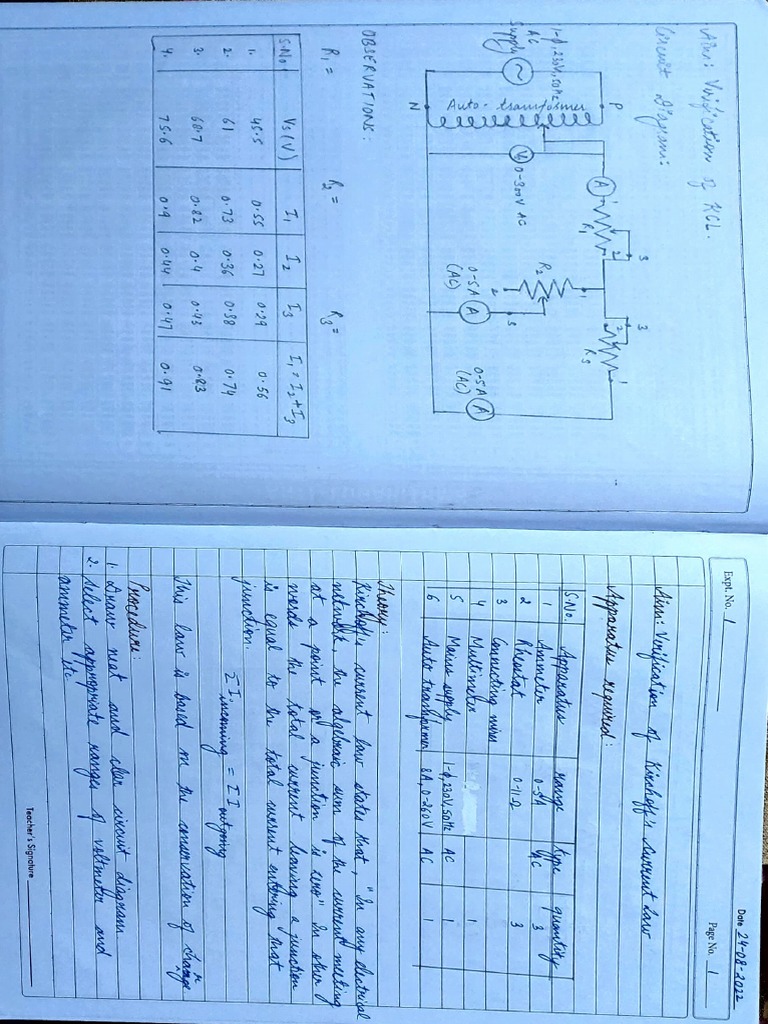 Aim: Verification of KCL.
Circuit Diagram:
1-ϕ, 230V, 50Hz
AC
Supply
P
N
Auto-transformer
V
0-300V AC
A
R1
1
2
3
R2
1
2
3
0-5A
(AC)
A
R3
1
2
3
0-5A
(AC)
A
OBSERVATIONS:
R1 = R2 = R3 =
S.No. Vs(V) I1 I2 I3 I1 = I2+I3
1. 45.5 0.55 0.27 0.29 0.56
2. 61 0.73 0.36 0.38 0.74
3. 68.7 0.82 0.4 0.43 0.83
4. 75.6 0.9 0.44 0.47 0.91
Date 24-08-2022
Expt. No. 1 Page No. 1
Aim: Verification of Kirchoff's Current Law
Apparatus required:
S.No. Apparatus range type quantity
1 Ammeter 0-5A AC 3
2 Rheostat 0-11Ω 3
3 Connecting wires
4 Multimeter 1
5 Mains supply 1-ϕ, 230V, 50Hz AC 1
6 Auto transformer 8A, 0-260V AC 1
Theory:
Kirchoff's current law states that, "In any electrical
network, the algebraic sum of the current meeting
at a point or a junction is zero" In other
words the total current leaving a junction
is equal to the total current entering that
junction.
ΣI incoming = ΣI outgoing
This law is based on the conservation of charge
Procedure:
1. Draw neat and clear circuit diagram
2. Select appropriate ranges of voltmeter and
ammeter etc.
Teacher's Signature